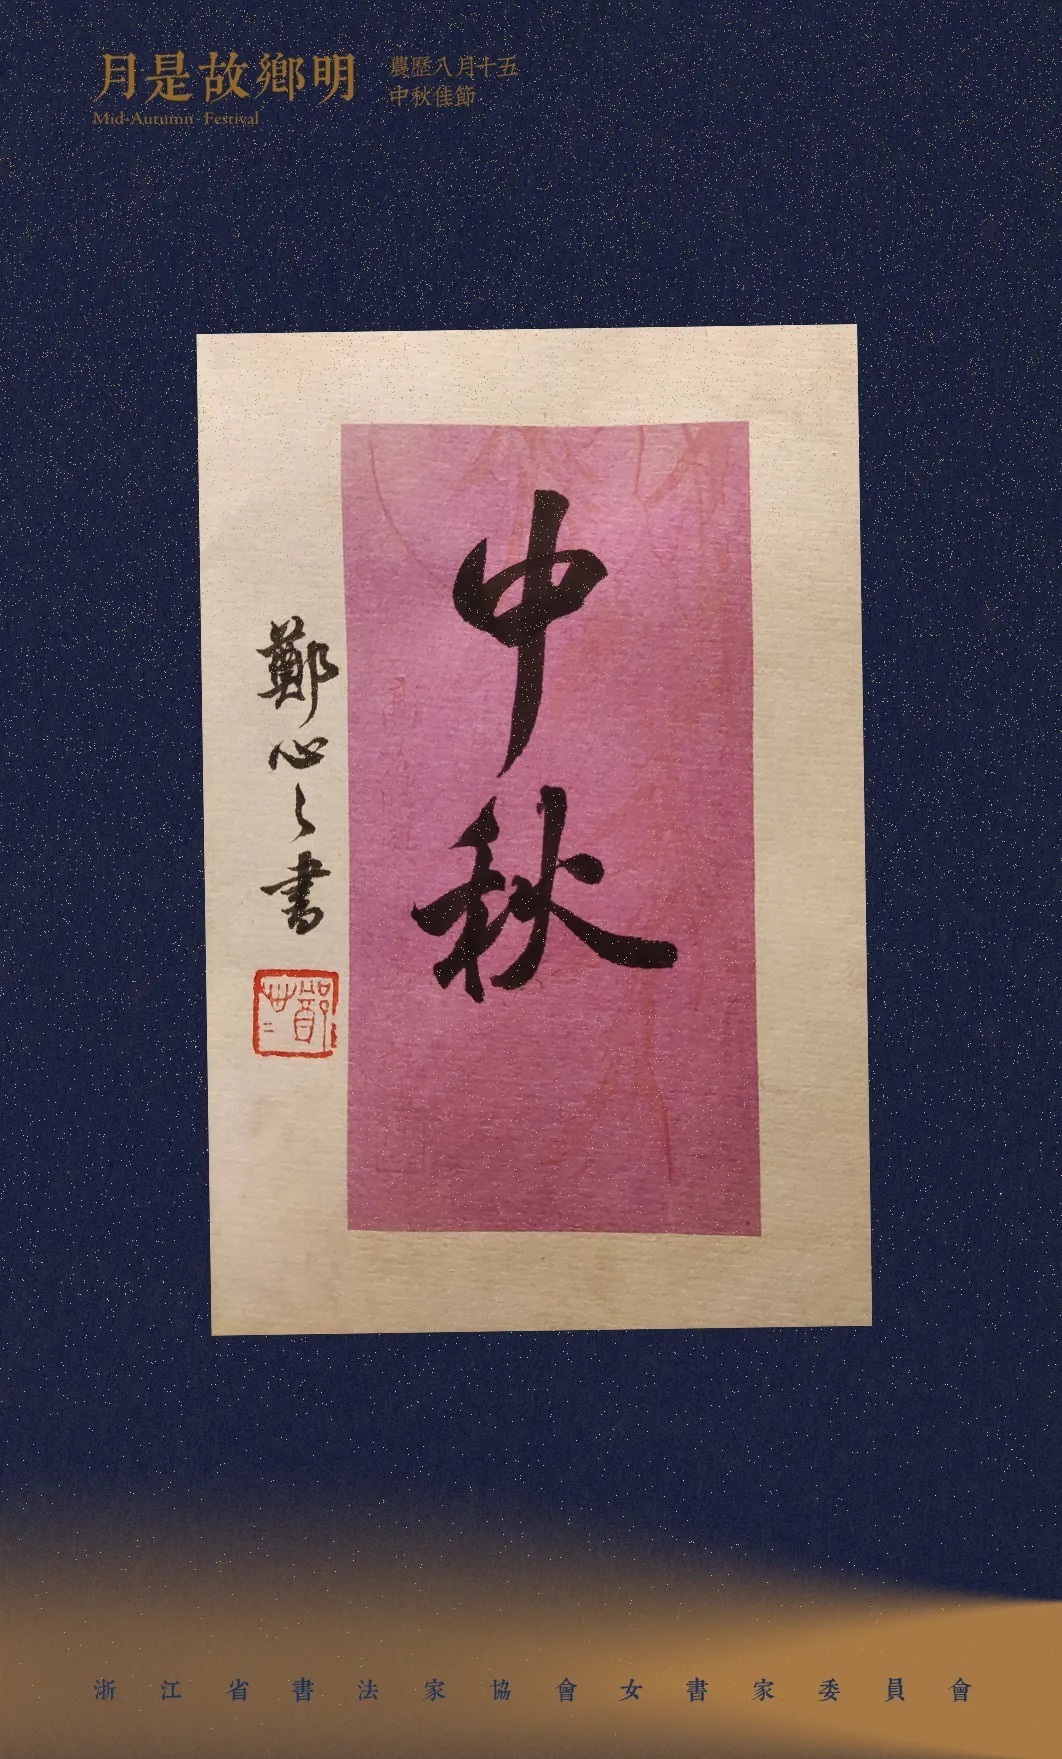 月是故鄉明
Mid-Autumn Festival
農歷八月十五
中秋佳節
中秋
鄭心之書
浙江省書法家協會女書家委員會